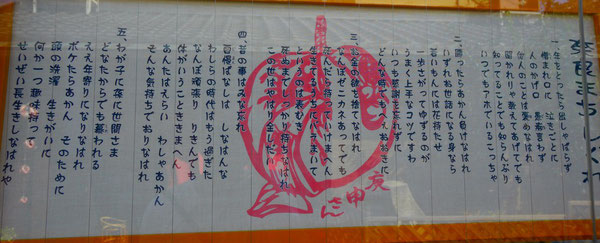 一、年をとったら出しゃばらず
憎まれ口に 泣きごとに
人のかげ口 愚痴言わず
他人のことは褒めなはれ
聞かれりゃ教えてあげてでも
知ってることでも知らんふり
いつでもアホでいるこっちゃ
二、勝ったらあかん負けなはれ
いずれお世話になる身なら
若いもんには花持たせ
一歩さがってゆずるのが
うまく上手なコツですわ
いつも感謝を忘れずに
どんな時でもへえおおきに
三、お金の欲を捨てなはれ
なんぼゼニカネあってでも
死んだら持っていけまへん
生きてるうちにバンバンまいて
というのは表むき
死ぬまでしっかり持ちなはれ
この世はやはり金しだい
四、昔の事はみな忘れ
自慢ばなしは しなはんな
わしらの時代はもう過ぎた
なんぼ頑張り りきんでも
体がいうことききまへん
あんたはえらい わしゃあかん
そんな気持ちでおりなはれ
五、わが子に孫に世間さま
どなたからでも慕われる
ええ年寄りになりなはれ
ボケたらあかん そのために
頭の洗濯 生きがいに
何か一つ趣味持って
せいぜい長生きしなはれや
庚申さん